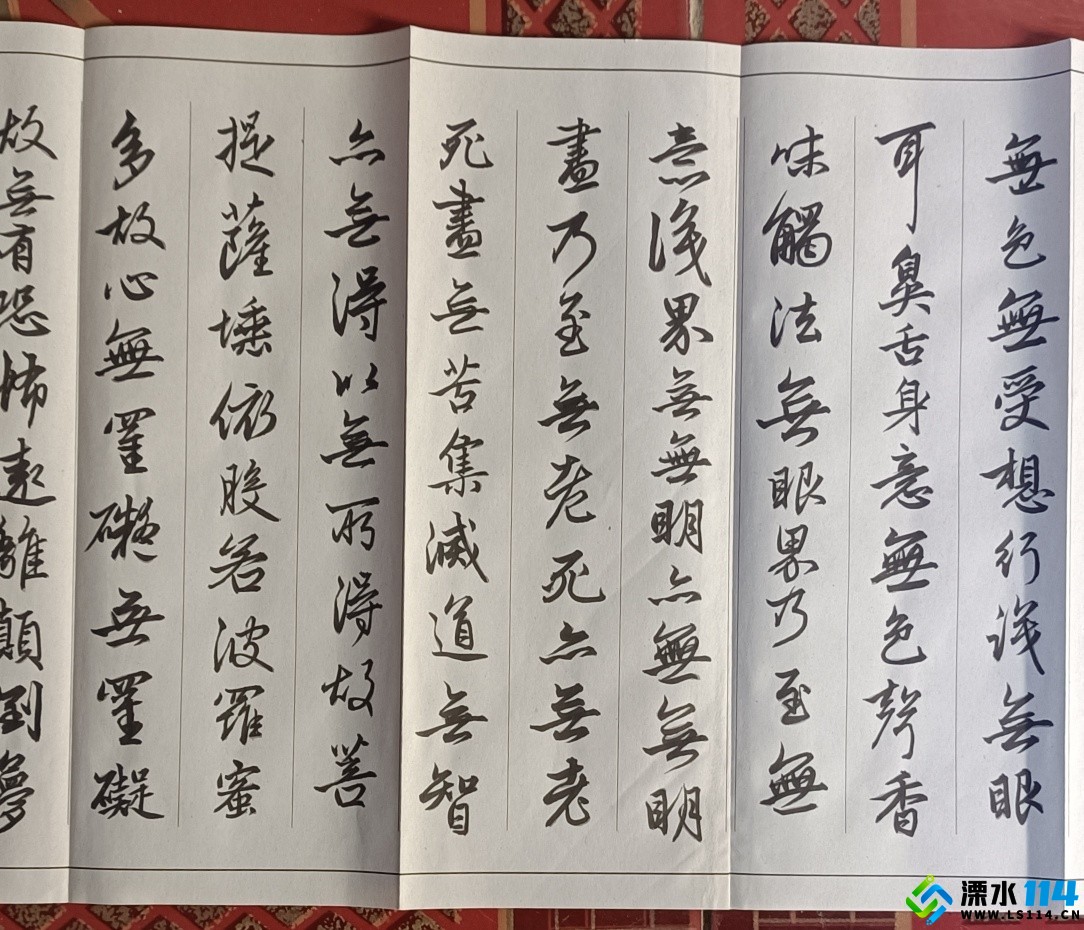 無色無受想行識無眼
耳鼻舌身意無色聲香
味觸法無眼界乃至無
意識界無無明亦無無明
盡乃至無老死亦無老
死盡無苦集滅道無智
亦無得以無所得故菩
提薩埵依般若波羅蜜
多故心無罣礙無罣礙
故無有恐怖遠離顛倒夢
溧水114
WWW.LS114.CN